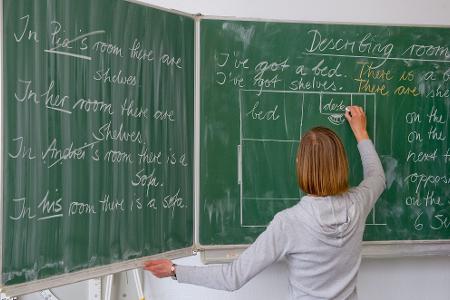 In Pia's room there are
shelves.
In her room there are
shelves.
In Andrei's room there is a
sofa.
In his room there is a sofa.
Describing room
I've got a bed. There is a b
I've got shelves. There are she
bed
desk
on the
on the
next t
opposi
on the
6 Si